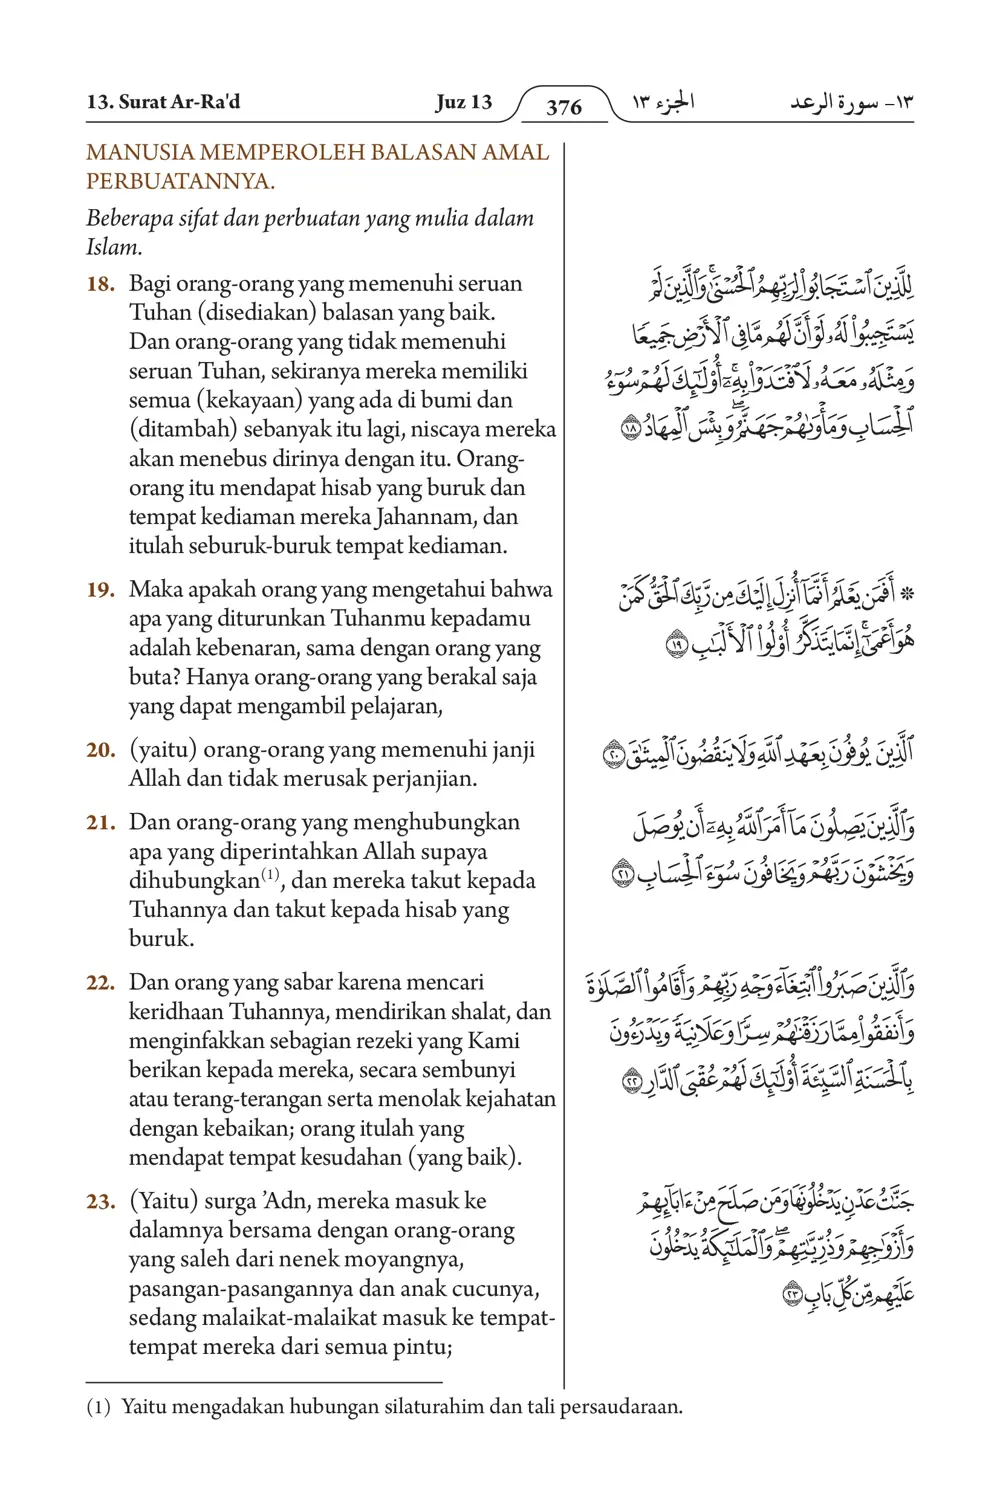 13. Surat Ar-Ra'd
Juz 13
376
الجزء ١٣
١٣- سورة الرعد
MANUSIA MEMPEROLEH BALASAN AMAL
PERBUATANNYA.
Beberapa sifat dan perbuatan yang mulia dalam
Islam.
18. Bagi orang-orang yang memenuhi seruan
Tuhan (disediakan) balasan yang baik.
Dan orang-orang yang tidak memenuhi
seruan Tuhan, sekiranya mereka memiliki
semua (kekayaan) yang ada di bumi dan
(ditambah) sebanyak itu lagi, niscaya mereka
akan menebus dirinya dengan itu. Orang-
orang itu mendapat hisab yang buruk dan
tempat kediaman mereka Jahannam, dan
itulah seburuk-buruk tempat kediaman.
لِلَّذِينَ ٱسْتَجَابُوا۟ لِرَبِّهِمُ ٱلْحُسْنَىٰ ۚ وَٱلَّذِينَ لَمْ
يَسْتَجِيبُوا۟ لَهُۥ لَوْ أَنَّ لَهُم مَّا فِى ٱلْأَرْضِ جَمِيعًا
وَمِثْلَهُۥ مَعَهُۥ لَٱفْتَدَوْا۟ بِهِۦٓ ۚ أُو۟لَٰٓئِكَ لَهُمْ سُوٓءُ
ٱلْحِسَابِ وَمَأْوَىٰهُمْ جَهَنَّمُ ۖ وَبِئْسَ ٱلْمِهَادُ ١٨
19. Maka apakah orang yang mengetahui bahwa
apa yang diturunkan Tuhanmu kepadamu
adalah kebenaran, sama dengan orang yang
buta? Hanya orang-orang yang berakal saja
yang dapat mengambil pelajaran,
۞ أَفَمَن يَعْلَمُ أَنَّمَآ أُنزِلَ إِلَيْكَ مِن رَّبِّكَ ٱلْحَقُّ كَمَنْ
هُوَ أَعْمَىٰٓ ۚ إِنَّمَا يَتَذَكَّرُ أُو۟لُوا۟ ٱلْأَلْبَٰبِ ١٩
20. (yaitu) orang-orang yang memenuhi janji
Allah dan tidak merusak perjanjian.
ٱلَّذِينَ يُوفُونَ بِعَهْدِ ٱللَّهِ وَلَا يَنقُضُونَ ٱلْمِيثَٰقَ ٢٠
21. Dan orang-orang yang menghubungkan
apa yang diperintahkan Allah supaya
dihubungkan(1), dan mereka takut kepada
Tuhannya dan takut kepada hisab yang
buruk.
وَٱلَّذِينَ يَصِلُونَ مَآ أَمَرَ ٱللَّهُ بِهِۦٓ أَن يُوصَلَ
وَيَخْشَوْنَ رَبَّهُمْ وَيَخَافُونَ سُوٓءَ ٱلْحِسَابِ ٢١
22. Dan orang yang sabar karena mencari
keridhaan Tuhannya, mendirikan shalat, dan
menginfakkan sebagian rezeki yang Kami
berikan kepada mereka, secara sembunyi
atau terang-terangan serta menolak kejahatan
dengan kebaikan; orang itulah yang
mendapat tempat kesudahan (yang baik).
وَٱلَّذِينَ صَبَرُوا۟ ٱبْتِغَآءَ وَجْهِ رَبِّهِمْ وَأَقَامُوا۟ ٱلصَّلَوٰةَ
وَأَنفَقُوا۟ مِمَّا رَزَقْنَٰهُمْ سِرًّا وَعَلَانِيَةً وَيَدْرَءُونَ
بِٱلْحَسَنَةِ ٱلسَّيِّئَةَ أُو۟لَٰٓئِكَ لَهُمْ عُقْبَى ٱلدَّارِ ٢٢
23. (Yaitu) surga ’Adn, mereka masuk ke
dalamnya bersama dengan orang-orang
yang saleh dari nenek moyangnya,
pasangan-pasangannya dan anak cucunya,
sedang malaikat-malaikat masuk ke tempat-
tempat mereka dari semua pintu;
جَنَّٰتُ عَدْنٍ يَدْخُلُونَهَا وَمَن صَلَحَ مِنْ ءَابَآئِهِمْ
وَأَزْوَٰجِهِمْ وَذُرِّيَّٰتِهِمْ ۖ وَٱلْمَلَٰٓئِكَةُ يَدْخُلُونَ
عَلَيْهِم مِّن كُلِّ بَابٍ ٢٣
(1) Yaitu mengadakan hubungan silaturahim dan tali persaudaraan.